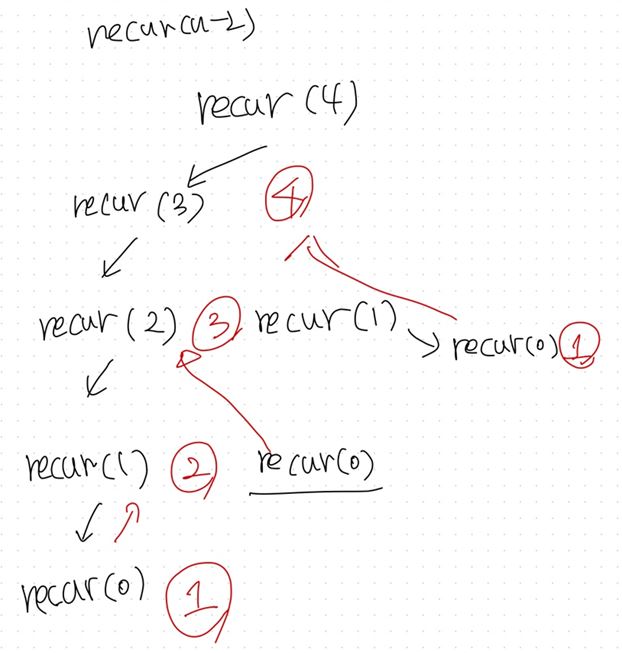 recur(n-2)
recur (4)
recur (3) 4
recur (2) 3 recur(1)
recur(0) 1
recur(1) 2 recur(0)
recur(0) 1